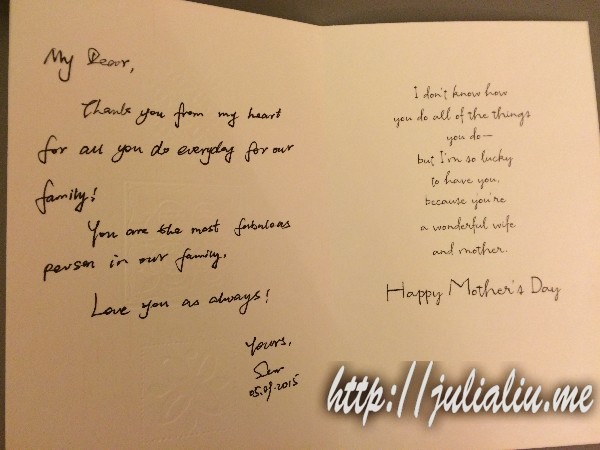 My Dear,
Thank you from my heart
for all you do everyday for our
family!
You are the most fabulous
person in our family.
Love you as always!
Yours,
05.09.2015
I don't know how
you do all of the things
you do—
but I'm so lucky
to have you,
because you're
a wonderful wife
and mother.
Happy Mother's Day
http://julialiu.me